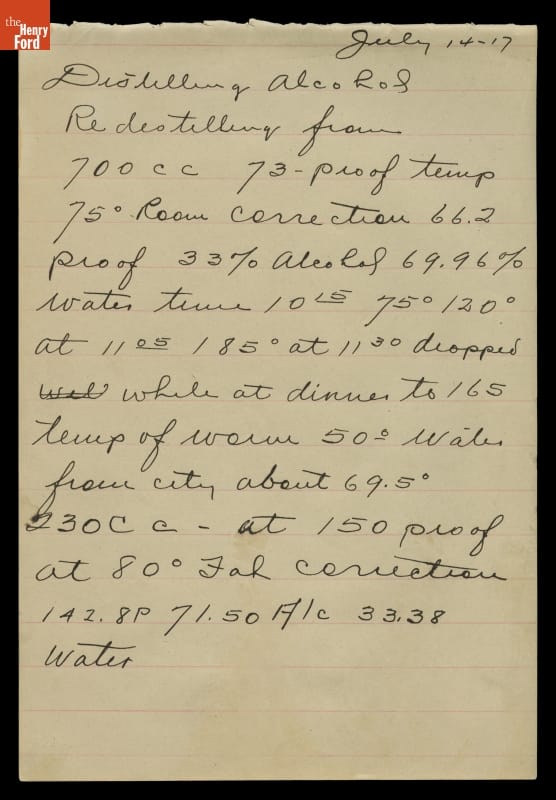 the
Henry
Ford
July 14-17
Distilling Alcohol
Redestilling from
700 c c 73-proof temp
75° Room correction 66.2
proof 33% Alcohol 69.96%
Water time 10 15 75° 120°
at 11 05 185° at 11 30 dropped
while at dinner to 165
temp of worm 50° Water
from city about 69.5°
230 C c - at 150 proof
at 80° Fah correction
142.8P 71.50 A/c 33.38
Water